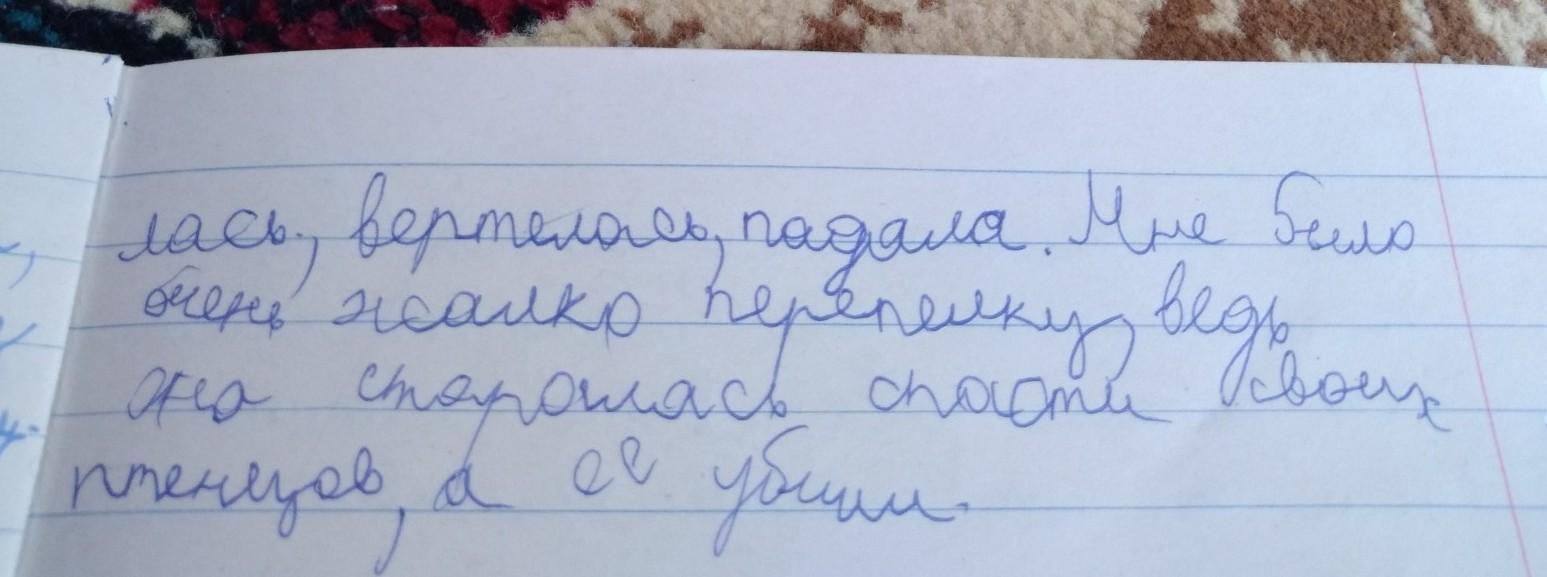 лась, вертелась, падала. Мне было
очень жалко перепелку, ведь
она старалась спасти своих
птенецов, а её убили.